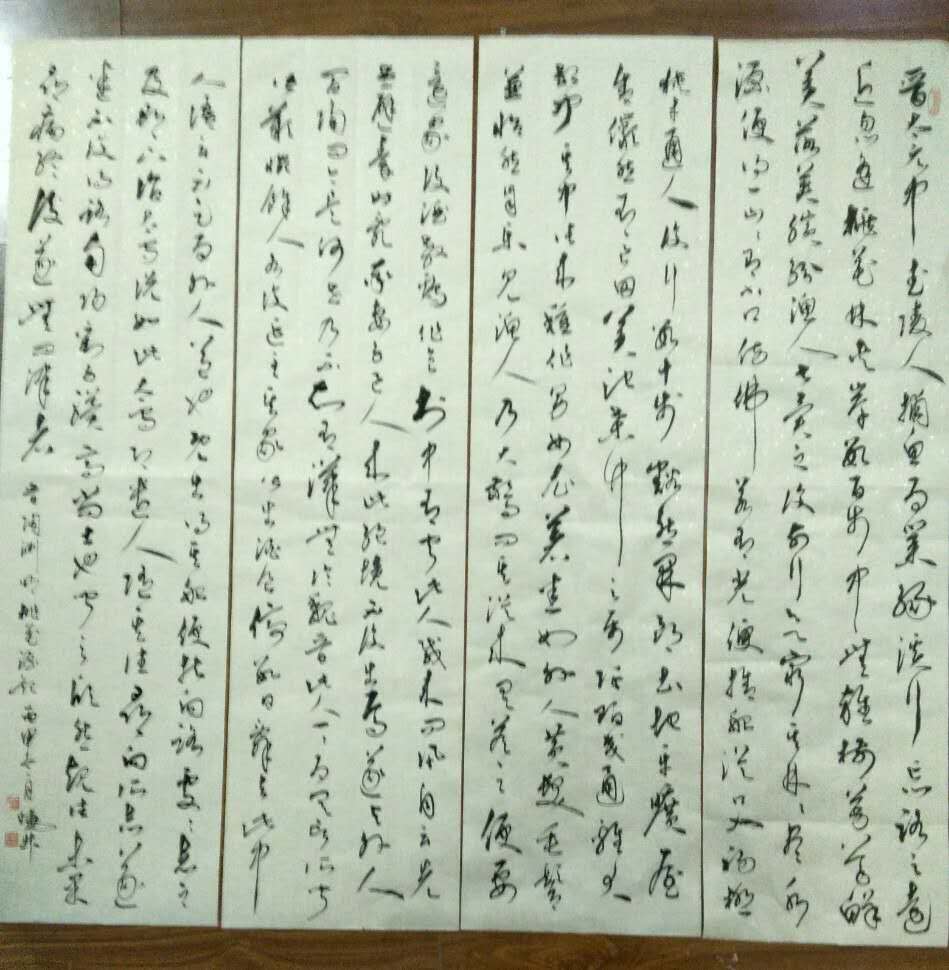 晉太元中武陵人捕魚為業緣溪行忘路之遠
近忽逢桃花林夾岸數百步中無雜樹芳草鮮
美落英繽紛漁人甚異之復前行欲窮其林林盡水
源便得一山山有小口彷彿若有光便捨船從口入初極
狹才通人復行數十步豁然開朗土地平曠屋
舍儼然有良田美池桑竹之屬阡陌交通雞犬
相聞其中往來種作男女衣著悉如外人黃髮垂髫
並怡然自樂見漁人乃大驚問其從來具答之便要
還家設酒殺雞作食村中有聞此人咸來問訊自云先
世避秦時亂率妻子邑人來此絕境不復出焉遂與外人
間隔問今是何世乃不知有漢無論魏晉此人一一為具言所聞
皆歎惋餘人各復延至其家皆出酒食停數日辭去此中
人語云不足為外人道也既出得其船便扶向路處處志之
及郡下詣太守說如此太守即遣人隨其往尋向所志遂
迷不復得路南陽劉子驥高尚士也聞之欣然規往未果
尋病終後遂無問津者 晉陶淵明桃花源記 丙申七月